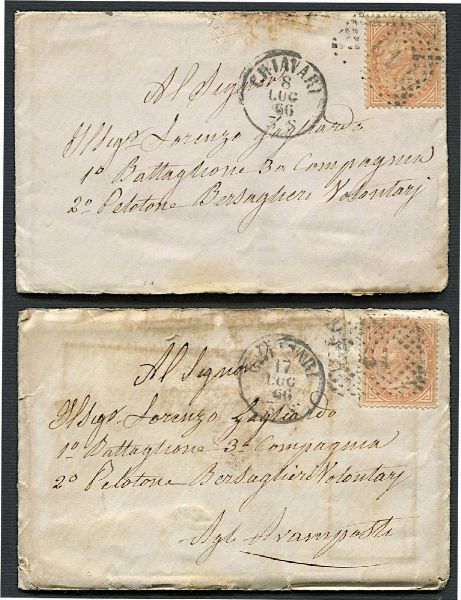 CHIAVARI
8
LUG
66
Al Signor
Illsigr Lorenzo Gagliardo
1º Battaglione 3a Compagnia
2º Pelotone Bersaglieri Volontarj
17
LUG
66
Al Signor
Illsigr Lorenzo Gagliardo
1º Battaglione 3a Compagnia
2º Pelotone Bersaglieri Volontarj
Agli Avamposti